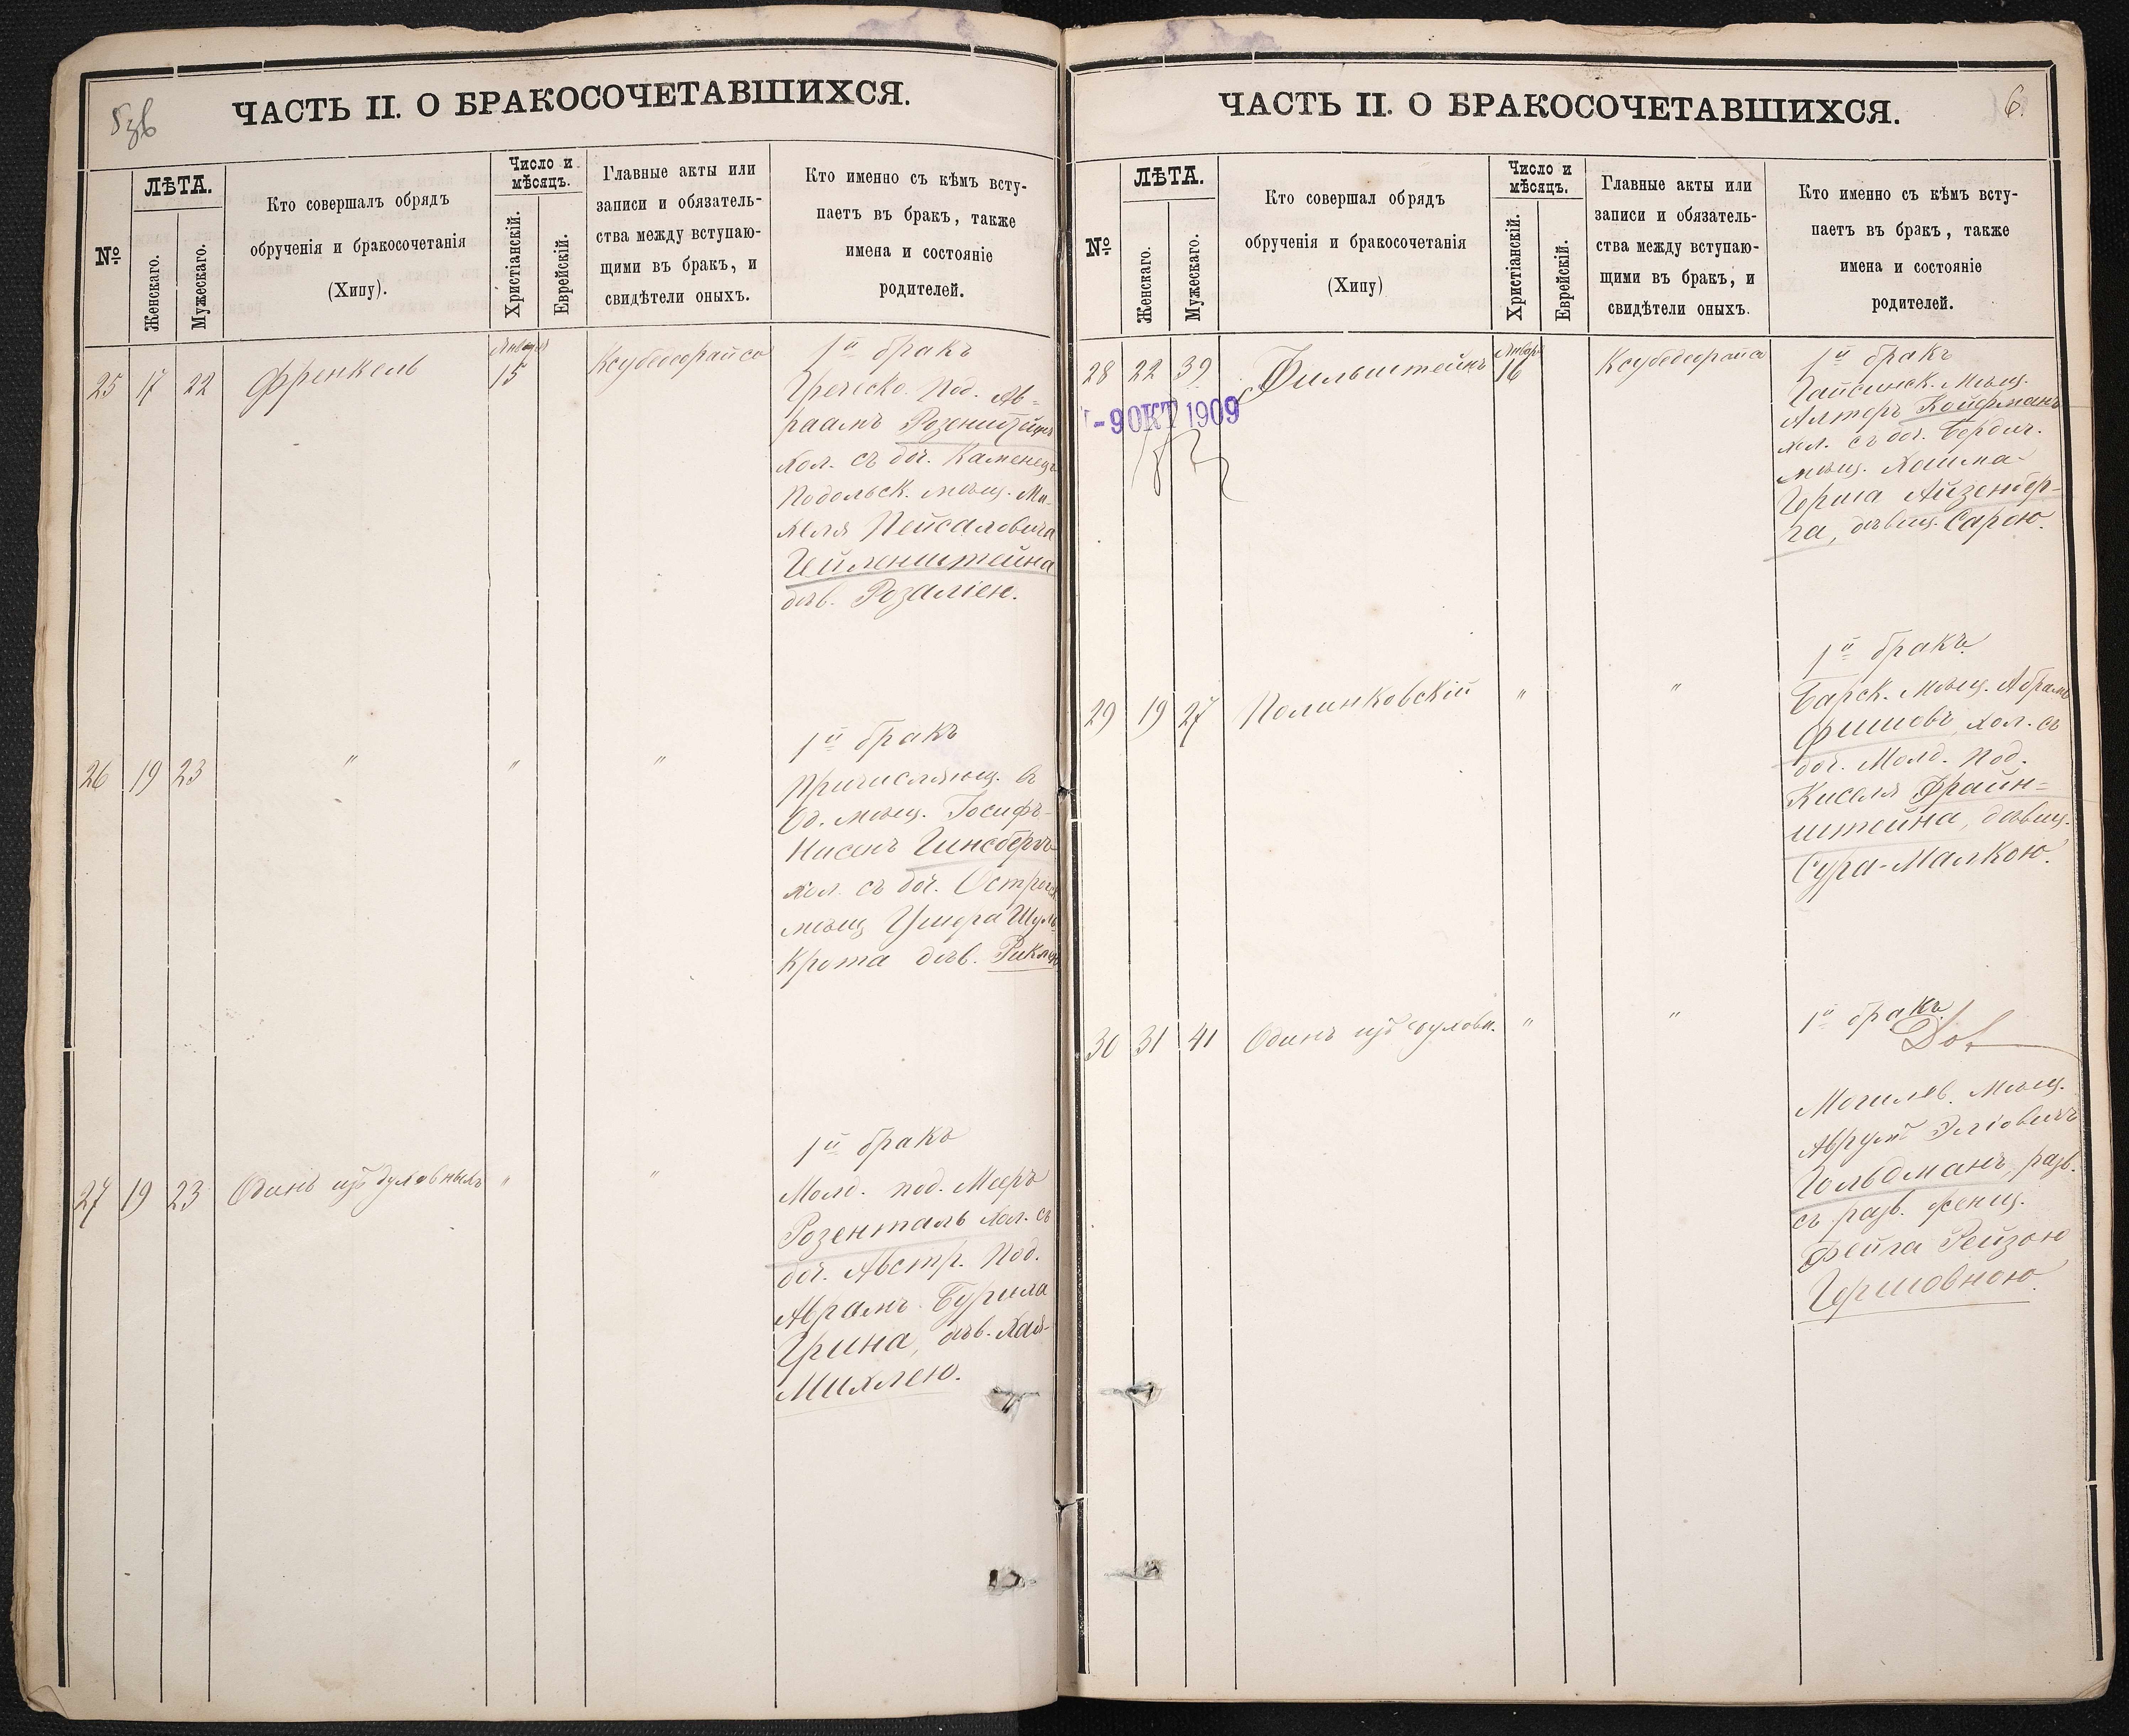 ЧАСТЬ II. О БРАКОСОЧЕТАВШИХСЯ.
№
ЛѢТА.
Женскаго.
Мужескаго.
Кто совершалъ обрядъ
обрученія и бракосочетанія
(Хипу).
Число и
мѣсяцъ.
Христіанскій.
Еврейскій.
Главные акты или
записи и обязатель-
ства между вступаю-
щими въ бракъ, и
свидѣтели оныхъ.
Кто именно съ кѣмъ всту-
паетъ въ бракъ, также
имена и состояніе
родителей.
25 17 22 Френкель Января 15
1й бракъ
Греческо. Под. Ав-
раамъ Розенштейнъ
хол. съ доч. Каменец
Подольск. мѣщ. Ми-
хеля Пейсаховича
Гейленштейна
дѣв. Розаліею.
26 19 23 " " "
1й бракъ
Причисляющ. в
Од. мѣщ. Іосифъ-
Нисенъ Гинсбергъ
хол. съ доч. Острог
мѣщ Ушера Шул
Крота дѣв.
27 19 23 Одинъ изъ духовныхъ " "
1й бракъ
Молд. под. Мееръ
Розенталь хол. съ
доч. Австр. Под.
Абрамъ
Грина, дѣв. Хая-
Михлею.
ЧАСТЬ II. О БРАКОСОЧЕТАВШИХСЯ.
6.
№
ЛѢТА.
Женскаго.
Мужескаго.
Кто совершал обрядъ
обрученія и бракосочетанія
(Хипу)
Число и
мѣсяцъ.
Христіанскій.
Еврейскій.
Главные акты или
записи и обязатель-
ства между вступаю-
щими въ бракъ, и
свидѣтели оныхъ.
Кто именно съ кѣмъ всту-
паетъ въ бракъ, также
имена и состояніе
родителей.
28 22 39 Фильштейнъ Январ 16
-9 ОКТ 1909
1й бракъ
Гайсинск. Мѣщ.
Алтеръ Койфманъ
хол. съ доч. Бердич.
мѣщ. Хаима-
Герша Айзенбер-
га, дѣвиц. Сарою.
29 19 27 Полинковскій " "
1й бракъ.
Барск. Мѣщ. Абрамъ
Фишовъ, хол. съ
доч. Молд. Под.
Киселя Фрайн-
штейна, дѣвиц.
Сура-Малкою.
30 31 41 Одинъ изъ духовн. " "
1й бракъ.
Могилев. Мѣщ.
Аврумъ Эліовичъ
Гольдманъ, разв.
съ разв. женщ.
Фейга Рейзою
Гершовною